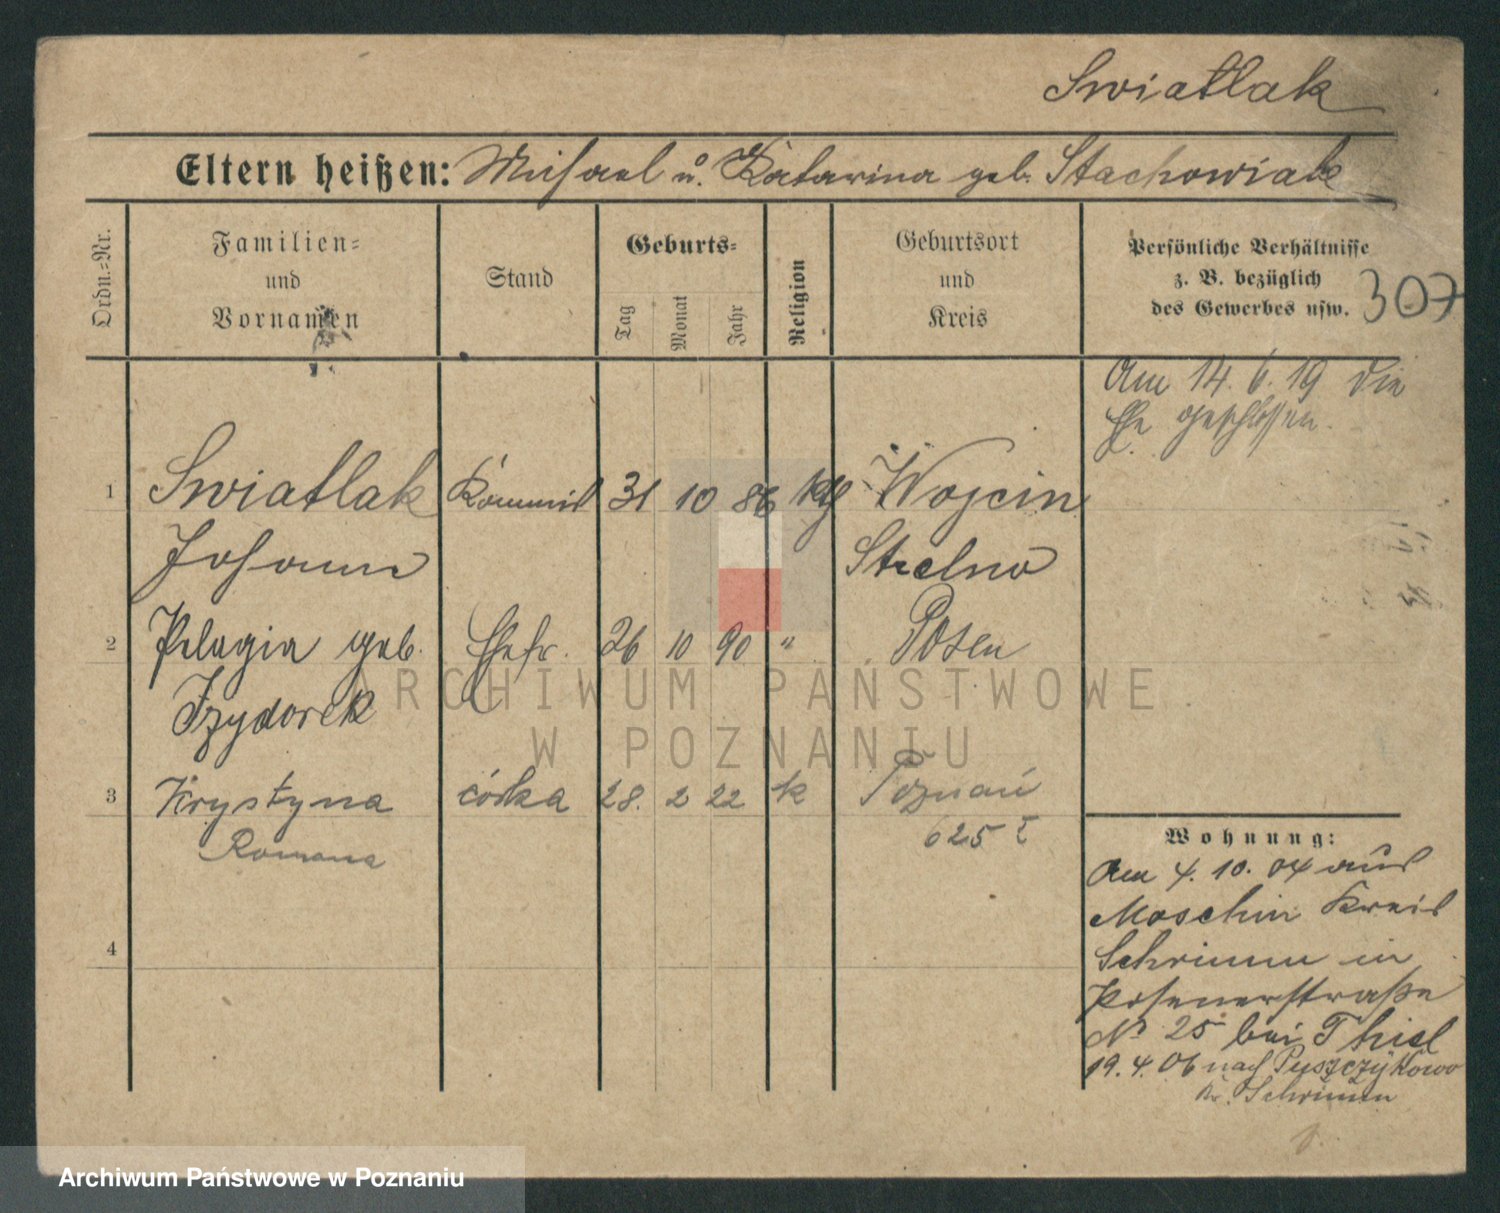 Swiatlak
Eltern heißen: Michael u. Katarina geb. Stachowiak
Ordn.-Nr.
Familien-
und
Vornamen
Stand
Geburts-
Tag
Monat
Jahr
Religion
Geburtsort
und
Kreis
Persönliche Verhältnisse
z. B. bezüglich
des Gewerbes usw.
307
Am 14. 6. 19 die
Ehe geschlossen.
1 Swiatlak Kommis 31 10 86 kth Wojcin
Johann Strelno
2 Pelagia geb. Ehefr. 26 10 90 " Posen
Izydorek
3 Krystyna córka 28. 2 22 k Poznań
Romana 625
4
Wohnung:
Am 4. 10. 04 aus
Moschin Kreis
Schrimm in
Posenerstraße
No 25 bei Thiel
19. 4. 06 nach Puszczykowo
Kr. Schrimm
ARCHIWUM PAŃSTWOWE
W POZNANIU
Archiwum Państwowe w Poznaniu